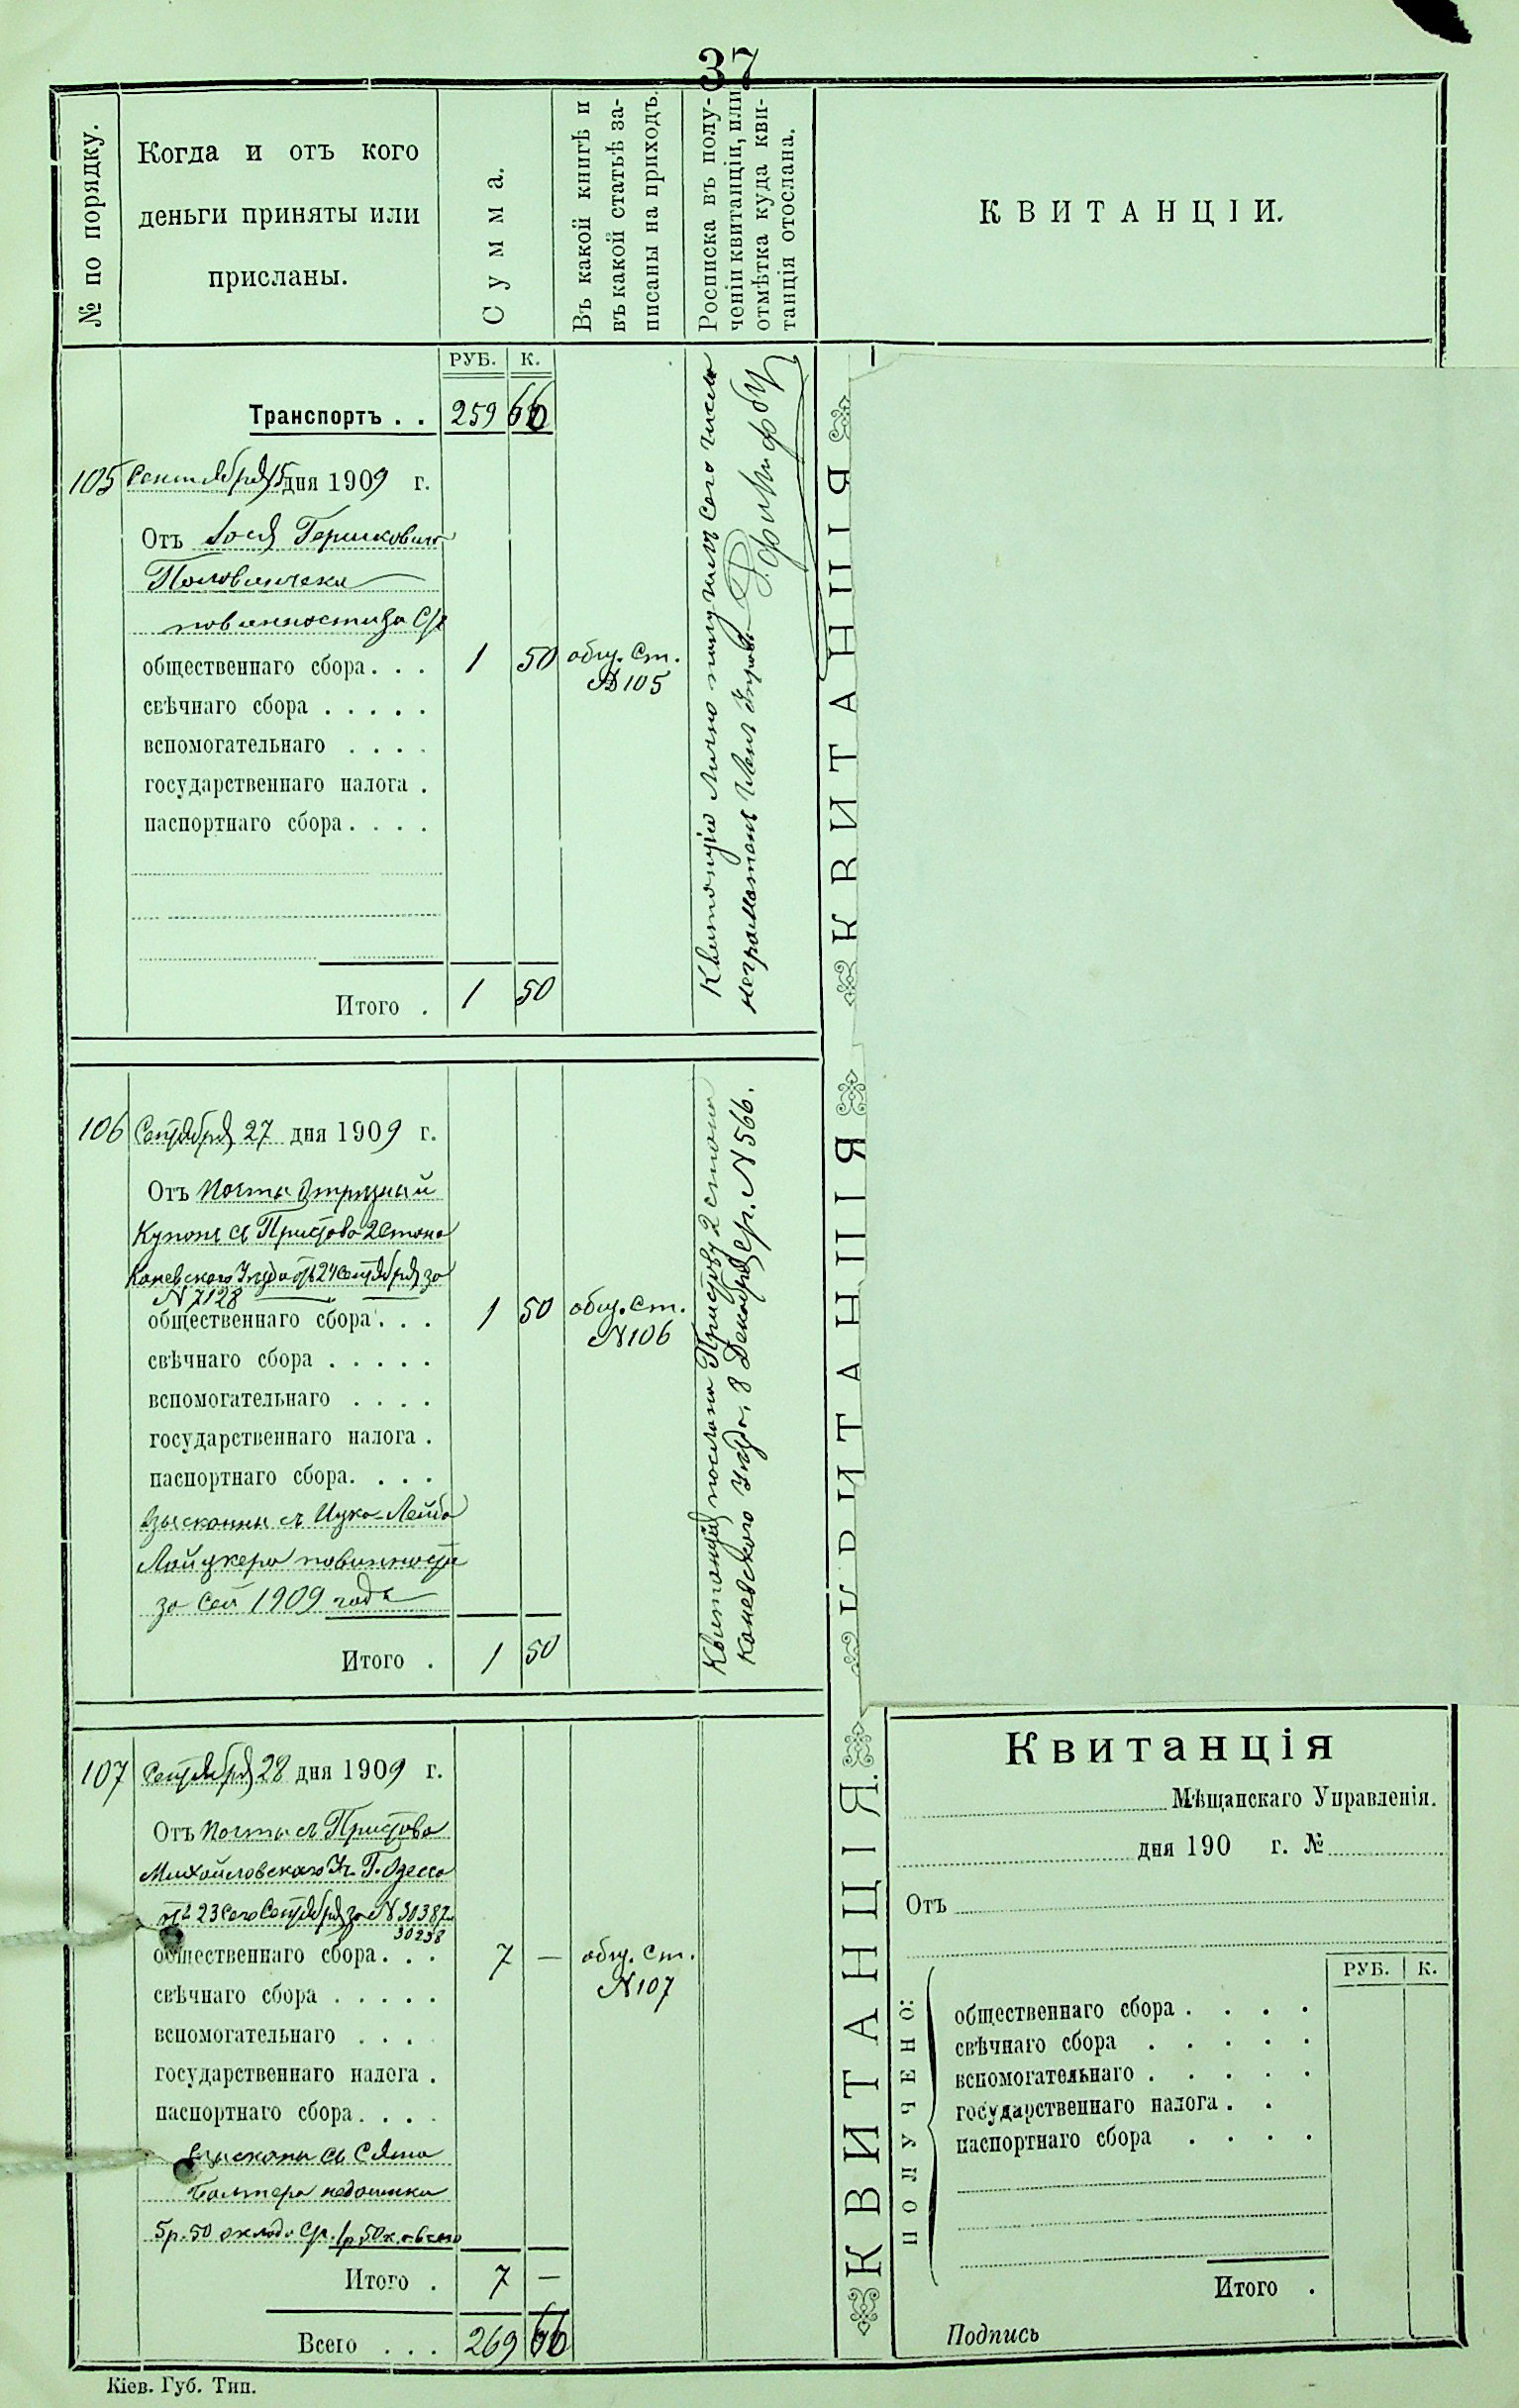 37
№ по порядку.
Когда и отъ кого
деньги приняты или
присланы.
Сумма.
Въ какой книгѣ и
въ какой статьѣ за-
писаны на приходъ.
Росписка въ полу-
ченіи квитанціи, или
отмѣтка куда кви-
танція отослана.
КВИТАНЦІИ.
РУБ. К.
Транспортъ . . 259 66
105 Сентября 15 дня 1909 г.
Отъ Іося Гершковича
повинности за С/г
общественнаго сбора . . . 1 50 общ. ст.
№ 105
свѣчнаго сбора . . . . .
вспомогательнаго . . . .
государственнаго налога .
паспортнаго сбора . . . .
Итого . 1 50
Квитанцію лично получилъ сего числа
неграмотенъ Член Управы
КВИТАНЦІЯ
106 Сентября 27 дня 1909 г.
Отъ Почты отрезный
Купонъ съ Пристава 2 стана
Каневского Уезда отъ 24 Сентября за
N 7128
общественнаго сбора . . . 1 50 общ. ст.
N 106
свѣчнаго сбора . . . . .
вспомогательнаго . . . .
государственнаго налога .
паспортнаго сбора. . . .
Взысканны съ Ицко-Лейба
повинности
за Сей 1909 годъ
Итого . 1 50
Квитанция послана Приставу 2 стана
Каневского Уезда, 8 Декабря С/г. N 566.
КВИТАНЦІЯ
107 Сентября 28 дня 1909 г.
Отъ Почты съ Пристава
Михайловского Уч. Г. Одесса
отъ 23 Сего Сентября за N 30387
30238
общественнаго сбора . . . 7 — общ. ст.
N 107
свѣчнаго сбора . . . . .
вспомогательнаго . . . .
государственнаго налога .
паспортнаго сбора . . . .
Взыскани съ
недоимки
5 р. 50 оклада С/г. 1 р. 50 к.
Итого . 7 —
Всего . . . 269 66
КВИТАНЦІЯ.
Квитанція
Мѣщанскаго Управленія.
дня 190 г. №
Отъ
РУБ. К.
ПОЛУЧЕНО:
общественнаго сбора . . . .
свѣчнаго сбора . . . . .
вспомогательнаго . . . . .
государственнаго налога . .
паспортнаго сбора . . . .
Итого .
Подпись
Кіев. Губ. Тип.